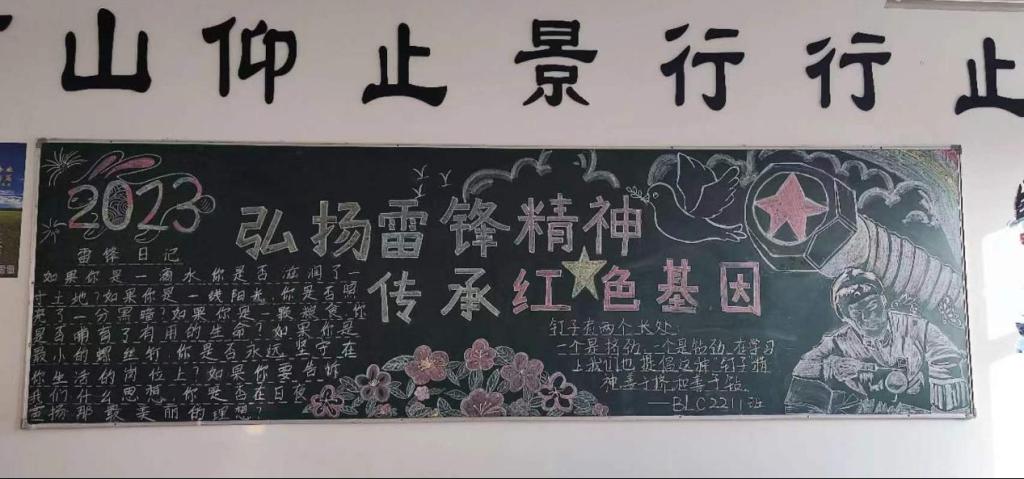 山仰止景行行止
2023
弘扬雷锋精神
传承红色基因
雷锋日记
如果你是一滴水,你是否滋润了一
寸土地?如果你是一线阳光,你是否照
亮了一分黑暗?如果你是一颗粮食,你
是否哺育了有用的生命?如果你是
最小的螺丝钉,你是否永远坚守在
你生活的岗位上?如果你要告诉
我们什么思想,你是否在日夜
宣扬那最美丽的理想?
钉子有两个长处:
一个是挤劲,一个是钻劲,在学习
上我们也提倡这种"钉子精
神善于挤和善于钻。
——BLC2211班